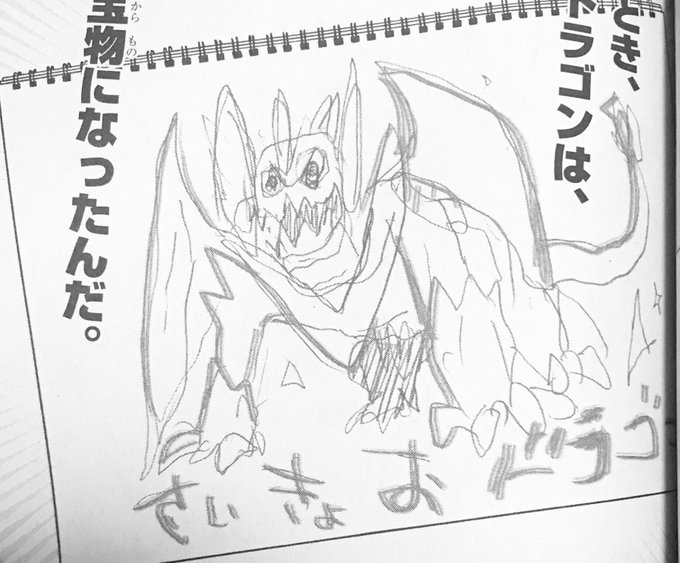 どき、
ドラゴンは、
宝物になったんだ。
から もの
さいきょお ドラゴ